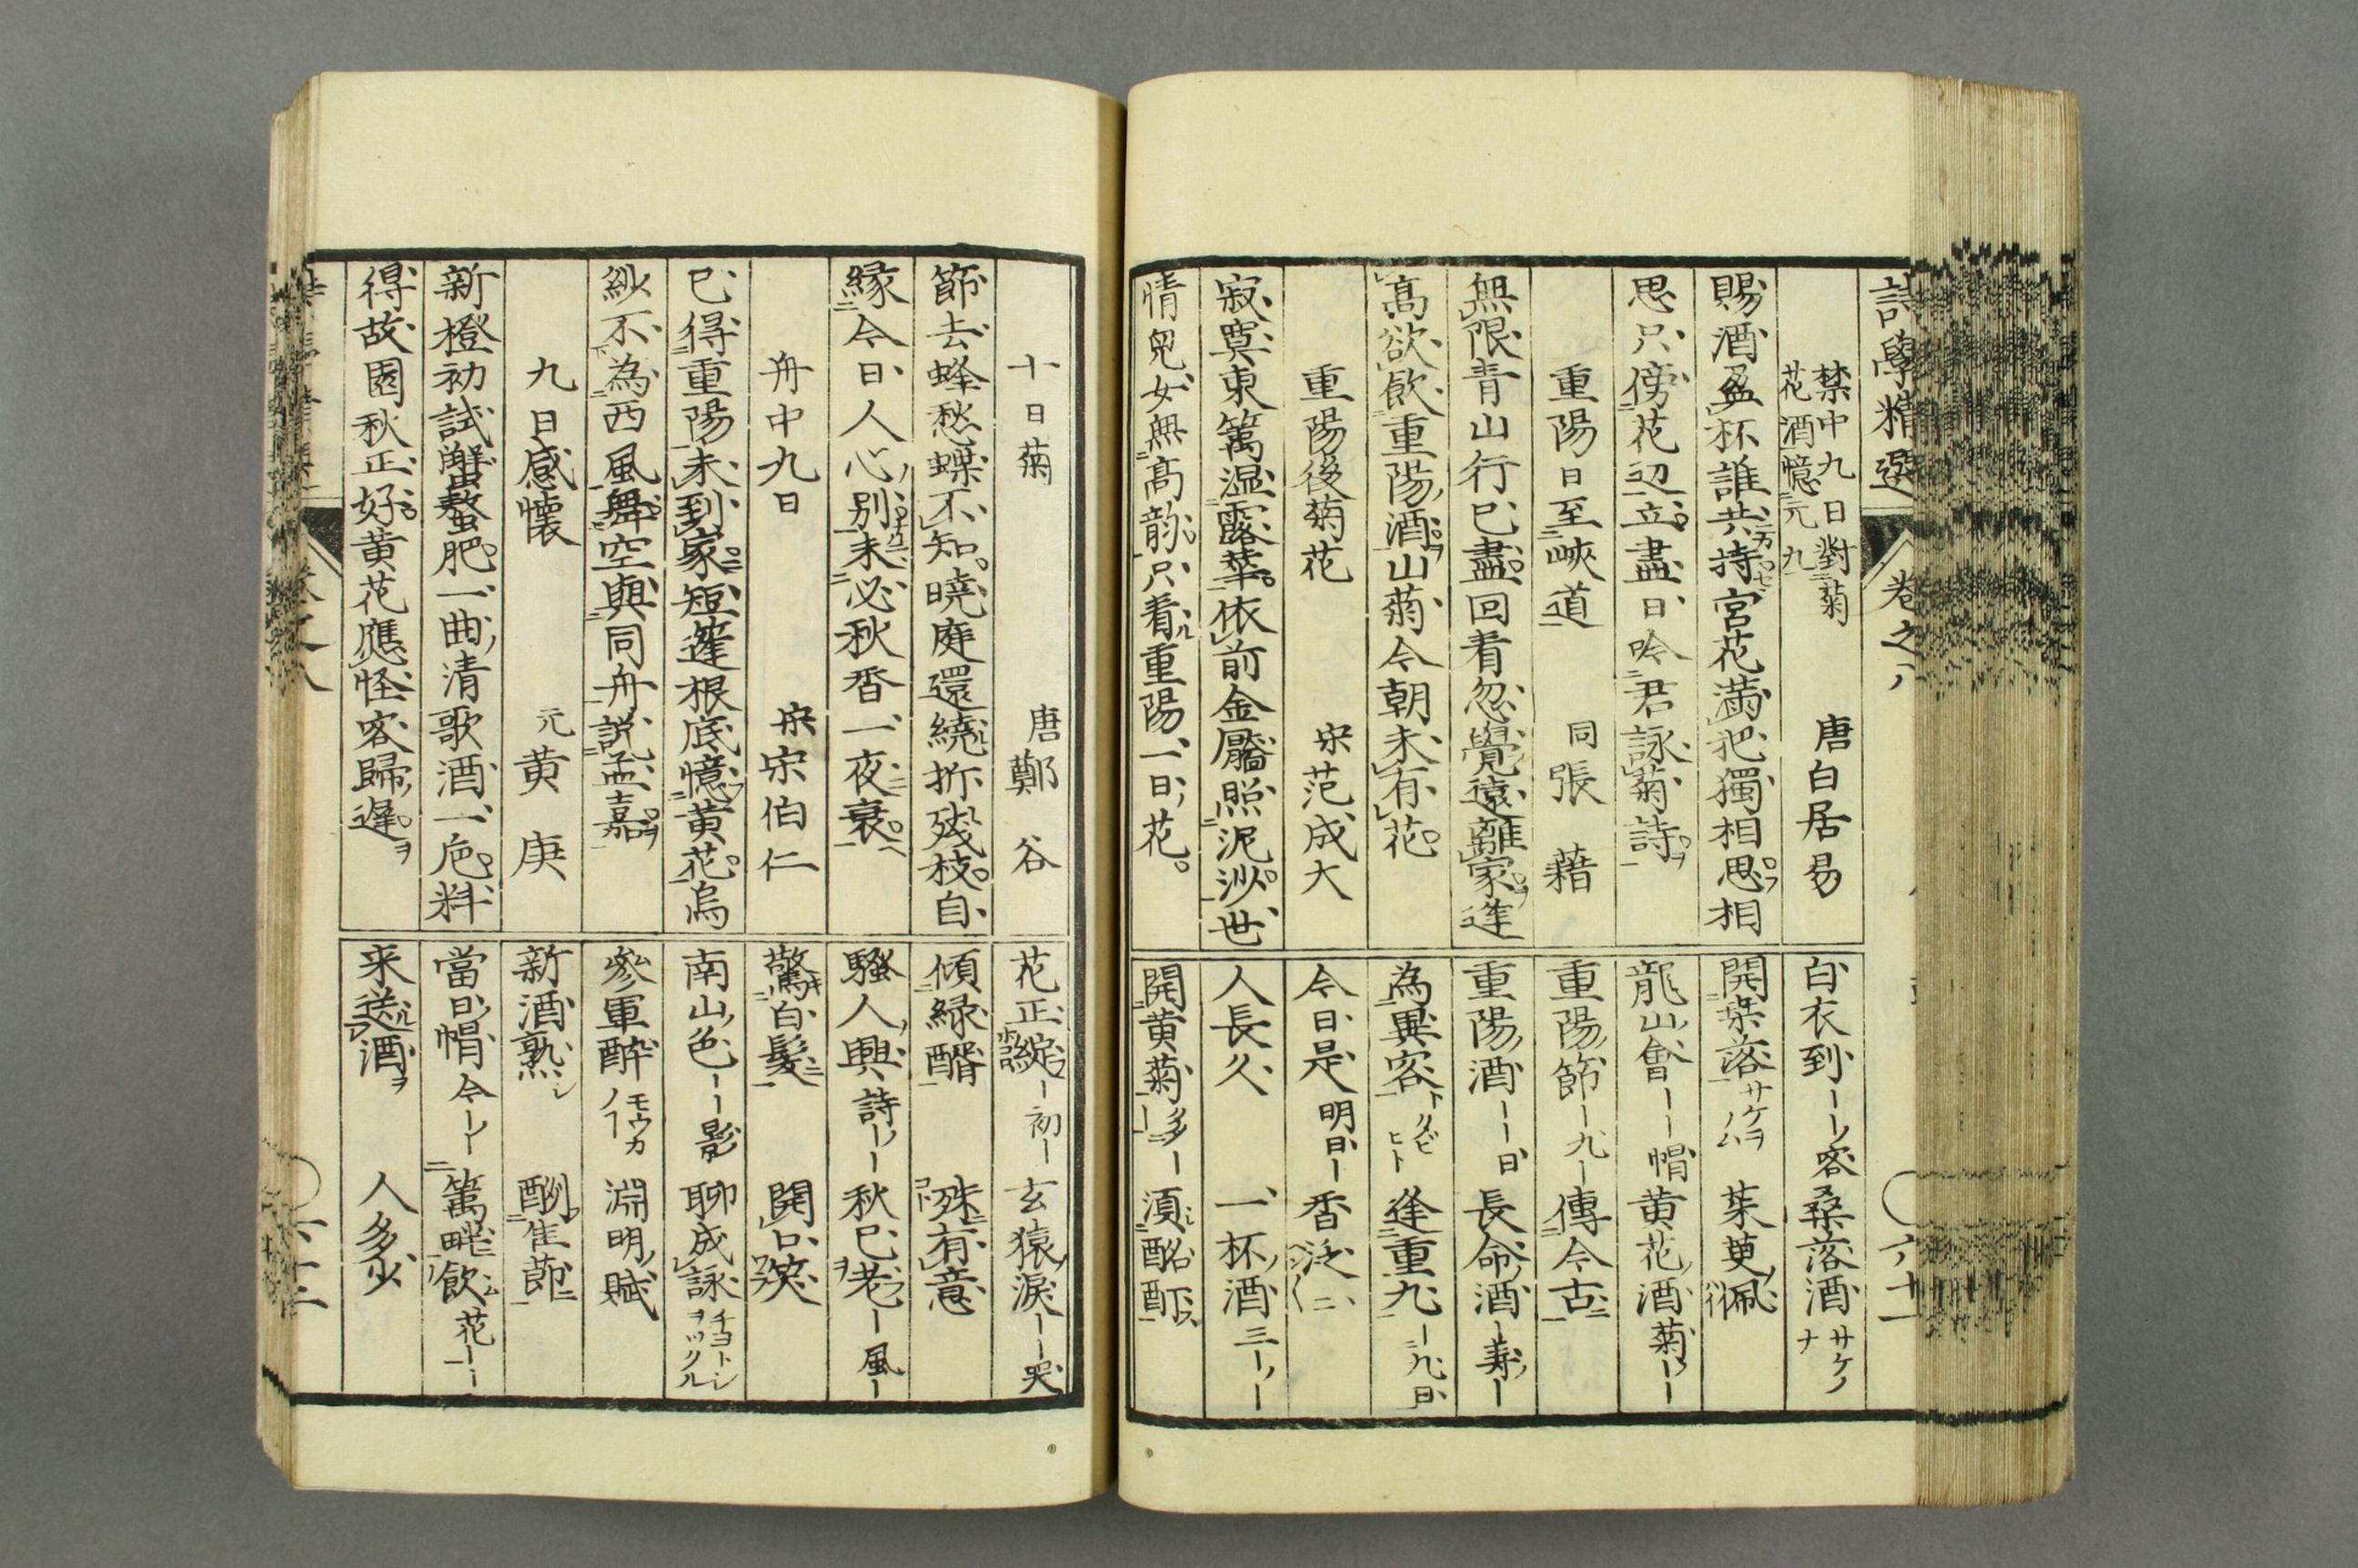 詩學精選 卷之八
禁中九日對菊
花酒憶元九
唐白居易
賜酒盈杯誰共持宮花滿把獨相思相
思只傍花辺立盡日吟君詠菊詩
重陽日至峽道 同張藉
無限青山行已盡回看忽覺遠離家逢
高欲飲重陽酒山菊今朝未有花
重陽後菊花 宋范成大
寂寞東籬湿露華依前金靨照泥沙世
情兒女無高韵只看重陽一日花
白衣到ーー客 桑落酒サケノナ
開桒落サケヲノム 茱萸佩
龍山會ーー帽 黄花酒菊ーー
重陽節ー九ー 傳今古
重陽酒ーー日 長命酒ー寿ー
為異客 タビビト 逢重九ー九日
今日是明日ー 香泛
人長久 一杯酒三ーー
開黄菊多ー 須酩酊
十日菊 唐鄭谷
節去蜂愁蝶不知曉庭還繞折殘枝自
縁今日人心別未必秋香一夜衰
舟中九日 宋宋伯仁
已得重陽未到家短篷根底憶黄花烏
紗不為西風舞空與同舟説孟嘉
九日感懐 元黄庚
新橙初試蟹螯肥一曲清歌酒一巵料
得故園秋正好黄花應怪客歸遲
花正綻ー初ー 玄猿淚ーー哭
傾緑醑 殊有意
騷人興詩ーー 秋已老ー風ー
驚白髮 開口笑
南山色ーー影 聊成詠チヨトシヲツクル
參軍酔モウカノー 淵明賦
新酒熟 酬隹莭
當日帽今ーー 籬畔飲花ーー
来送酒 人多少